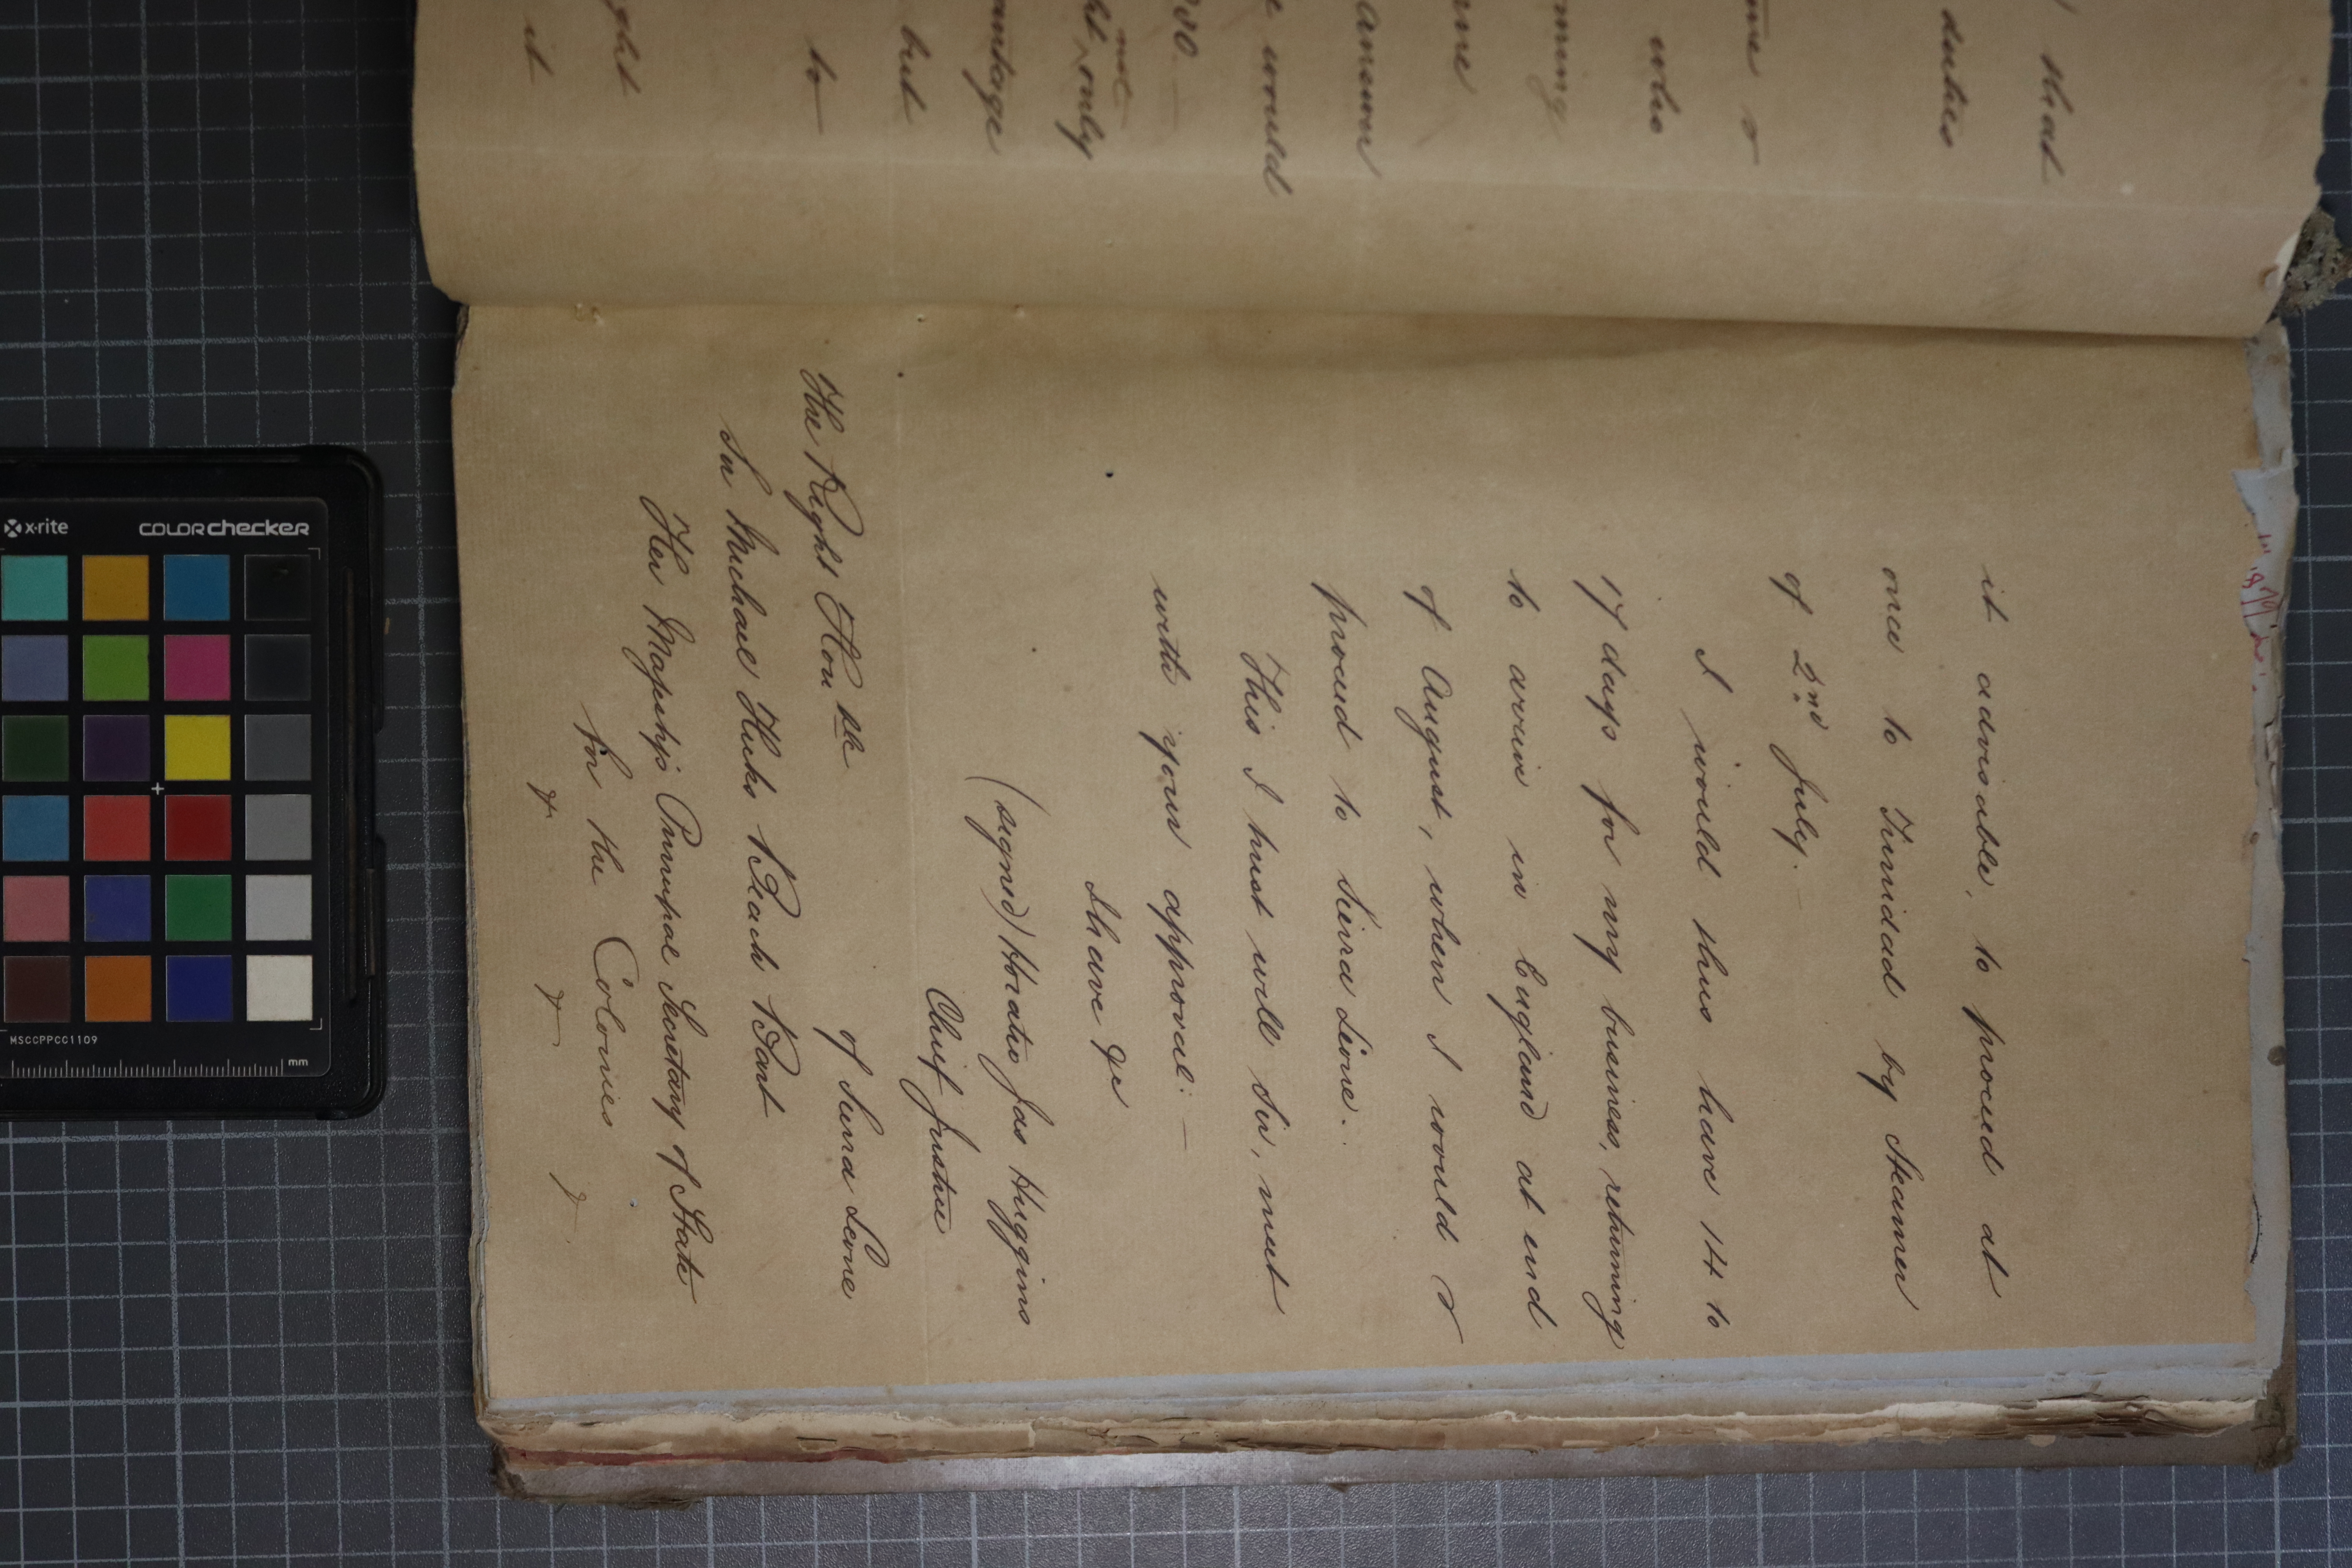 ) that
duties
me &
who
ming
me
answer
e would
not
ht ^ only
antage
but
to
ght
it
it advisable, to proceed at
once to Trinidad by Steamer
of 2nd July. —
I would thus have 14 to
17 days for my business, returning
to arrive in England at end
of August, when I would &
proceed to Sierra Leone.
This I trust will Sir, meet
with your approval: —
I have &c
(signed) Horatio Jas Huggins
Chief Justice
of Sierra Leone
The Right Honble
Sir Michael Hicks Beach Bart
Her Majesty's Principal Secretary of State
for the Colonies
& & &
x·rite COLORchecker
MSCCPPCC1109
mm